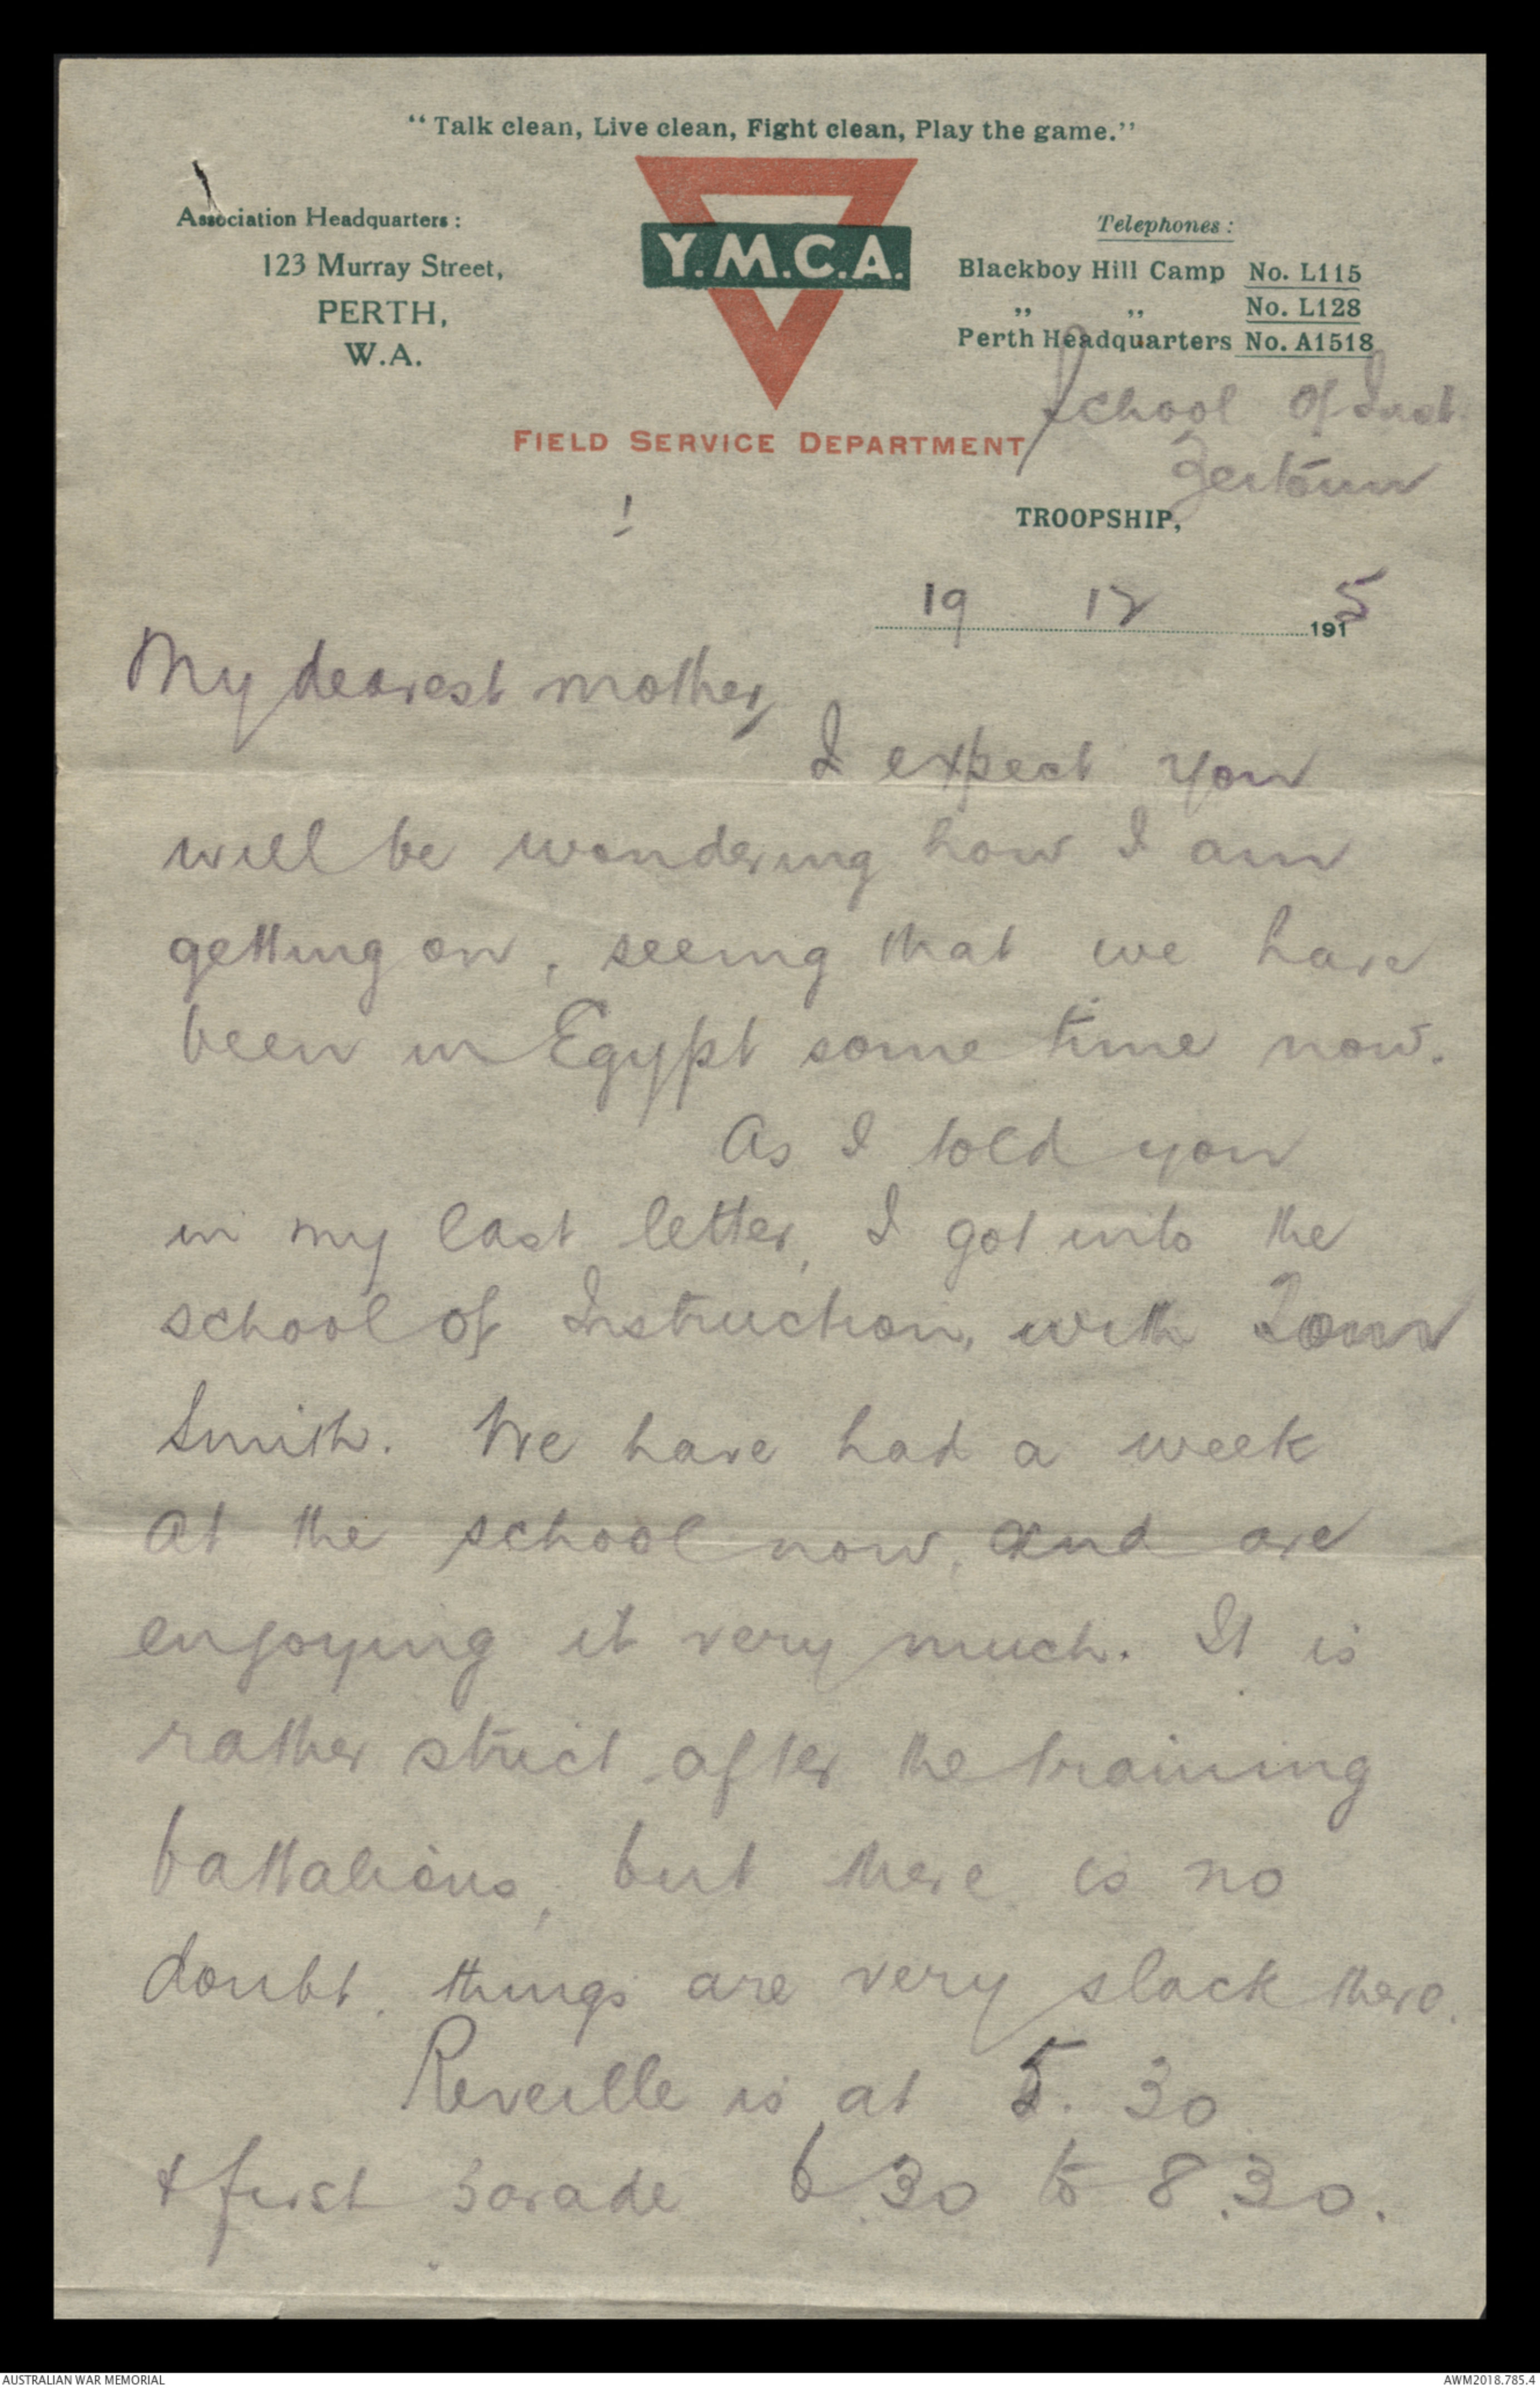 “Talk clean, Live clean, Fight clean, Play the game.”
Association Headquarters:
123 Murray Street,
PERTH,
W.A.
Y.M.C.A.
Telephones:
Blackboy Hill Camp No. L115
„ „ No. L128
Perth Headquarters No. A1518
FIELD SERVICE DEPARTMENT
School of Inst.
Zeitoun
TROOPSHIP,
19 12 1915
My dearest mother,
I expect you
will be wondering how I am
getting on, seeing that we have
been in Egypt some time now.
As I told you
in my last letter, I got into the
school of Instruction, with Tom
Smith. We have had a week
at the school now, and are
enjoying it very much. It is
rather strict after the training
battalions, but there is no
doubt, things are very slack there.
Reveille is at 5.30
& first parade 6.30 to 8.30.
AUSTRALIAN WAR MEMORIAL
AWM2018.785.4